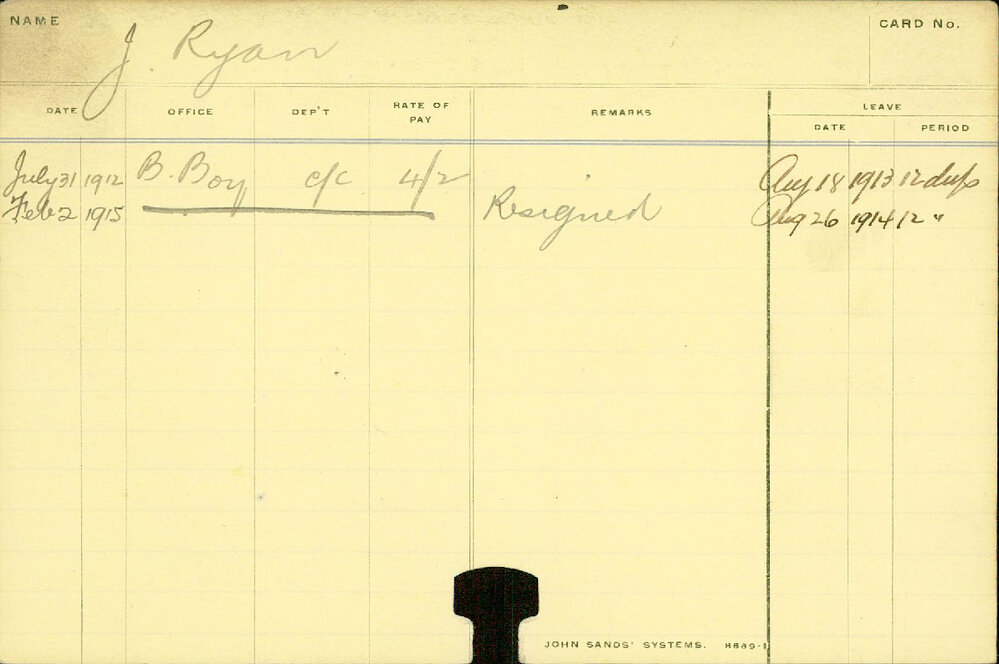 NAME J. Ryan CARD No.
DATE OFFICE DEP'T RATE OF PAY REMARKS LEAVE
DATE PERIOD
July 31 1912 B. Boy c/c 4/2 Aug 18 1913 12 days
Feb 2 1915 Resigned Aug 26 1914 12 "
JOHN SANDS' SYSTEMS. 8689-1